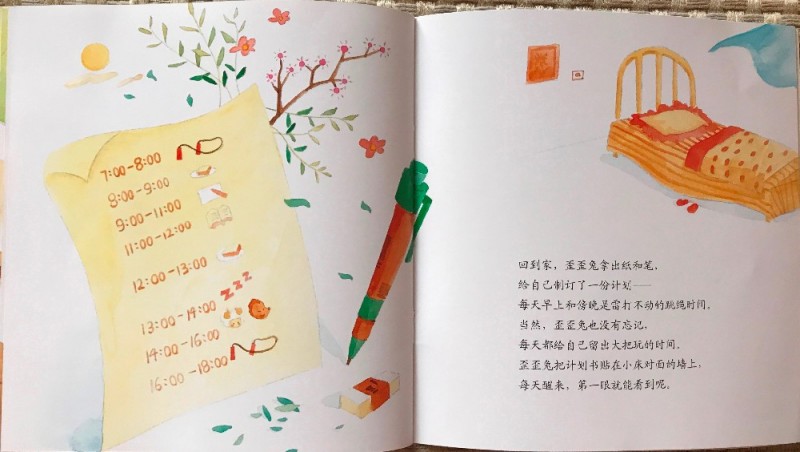 7:00-8:00
8:00-9:00
9:00-11:00
11:00-12:00
12:00-13:00
zzz
13:00-14:00
14:00-16:00
16:00-18:00
回到家，歪歪兔拿出纸和笔，
给自己制订了一份计划——
每天早上和傍晚是雷打不动的跳绳时间。
当然，歪歪兔也没有忘记，
每天都给自己留出大把玩的时间。
歪歪兔把计划书贴在小床对面的墙上，
每天醒来，第一眼就能看到呢。